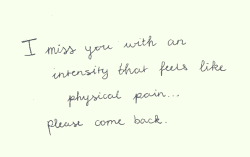 I miss you with an
intensity that feels like
physical pain...
please come back.